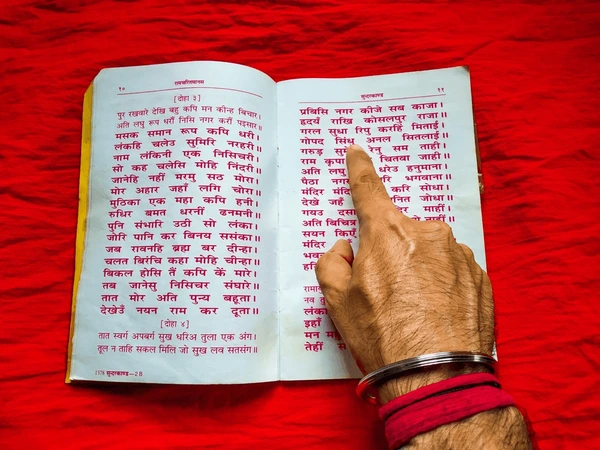 १० रामचरितमानस
[दोहा ३]
पुर रखवारे देखि बहु कपि मन कीन्ह बिचार।
अति लघु रूप धरौं निसि नगर करौं पइसार॥
मसक समान रूप कपि धरी।
लंकहि चलेउ सुमिरि नरहरी॥
नाम लंकिनी एक निसिचरी।
सो कह चलेसि मोहि निंदरी॥
जानेहि नहीं मरमु सठ मोरा।
मोर अहार जहाँ लगि चोरा॥
मुठिका एक महा कपि हनी।
रुधिर बमत धरनीं ढनमनी॥
पुनि संभारि उठी सो लंका।
जोरि पानि कर बिनय ससंका॥
जब रावनहि ब्रह्म बर दीन्हा।
चलत बिरंचि कहा मोहि चीन्हा॥
बिकल होसि तैं कपि कें मारे।
तब जानेसु निसिचर संघारे॥
तात मोर अति पुन्य बहूता।
देखेउँ नयन राम कर दूता॥
[दोहा ४]
तात स्वर्ग अपबर्ग सुख धरिअ तुला एक अंग।
तूल न ताहि सकल मिलि जो सुख लव सतसंग॥
सुन्दरकाण्ड—2B
सुन्दरकाण्ड ११
प्रबिसि नगर कीजे सब काजा।
हृदयँ राखि कोसलपुर राजा॥
गरल सुधा रिपु करहिं मिताई।
गोपद सिंधु अनल सितलाई॥
गरुड़ सम ताही।
राम चितवा जाही॥
अति लघु हनुमाना।
पैठा भगवाना॥
मंदिर मंदिर करि सोधा।
देखे जहँ जोधा॥
गयउ माहीं।
अति बिचित्र नाहीं॥
सयन किएँ
मंदिर
भवन
लंका
इहाँ
मन
तेहीं